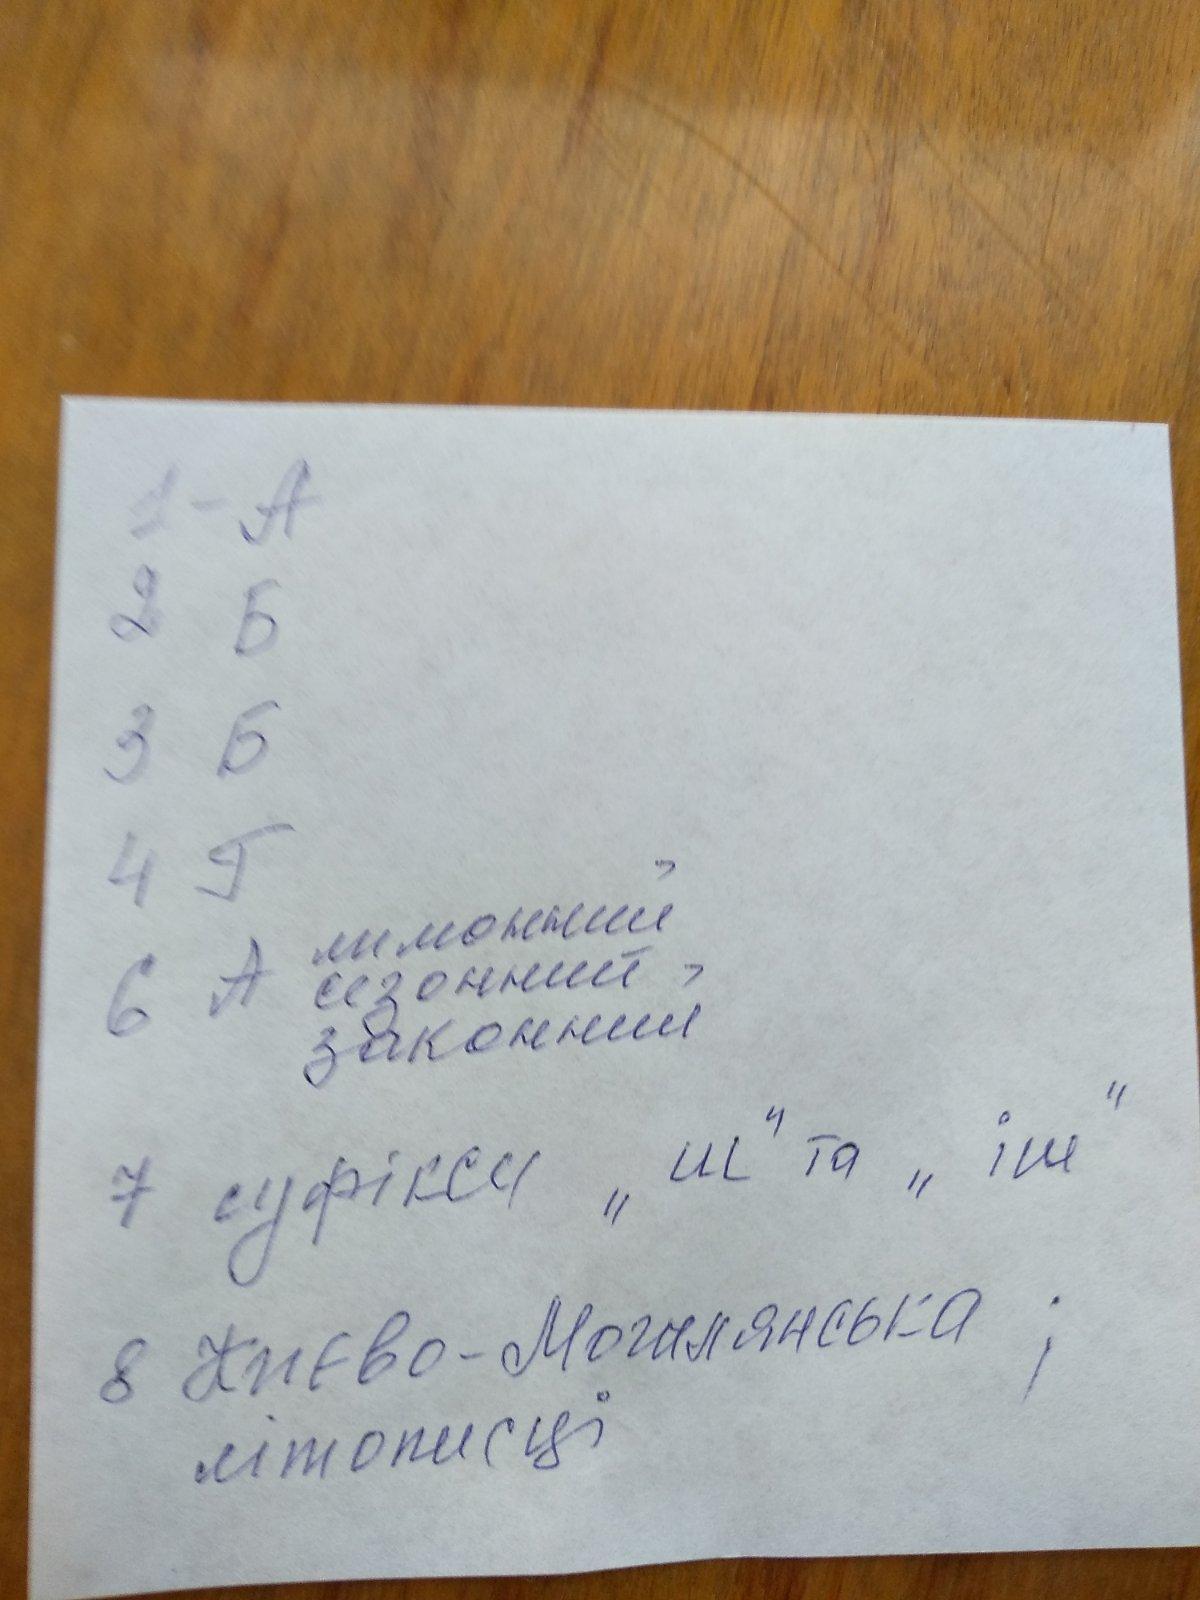 1 - А
2 Б
3 Б
4 Г
6 А лимонний,
сезонний,
законний
7 суфікси „ш" та „іш"
8 Києво-Могилянська ;
літописці